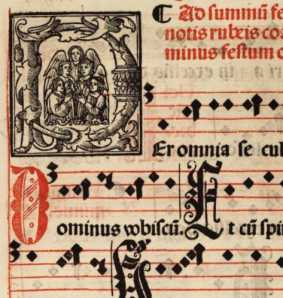 C Ad summū fe
notis rubeis cos
minus festum c
Per omnia se cul
Dominus vobiscū. Et cū spiri